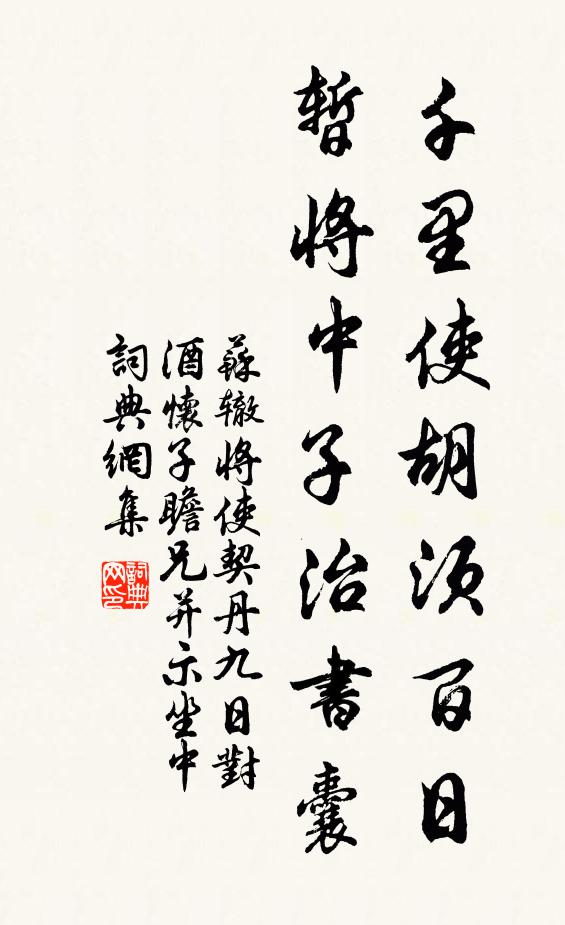 千里使胡須百日
暫將中子治書囊
蘇轍將使契丹九日對
酒懷子瞻兄并示坐中
詞典網集
詞典
网印